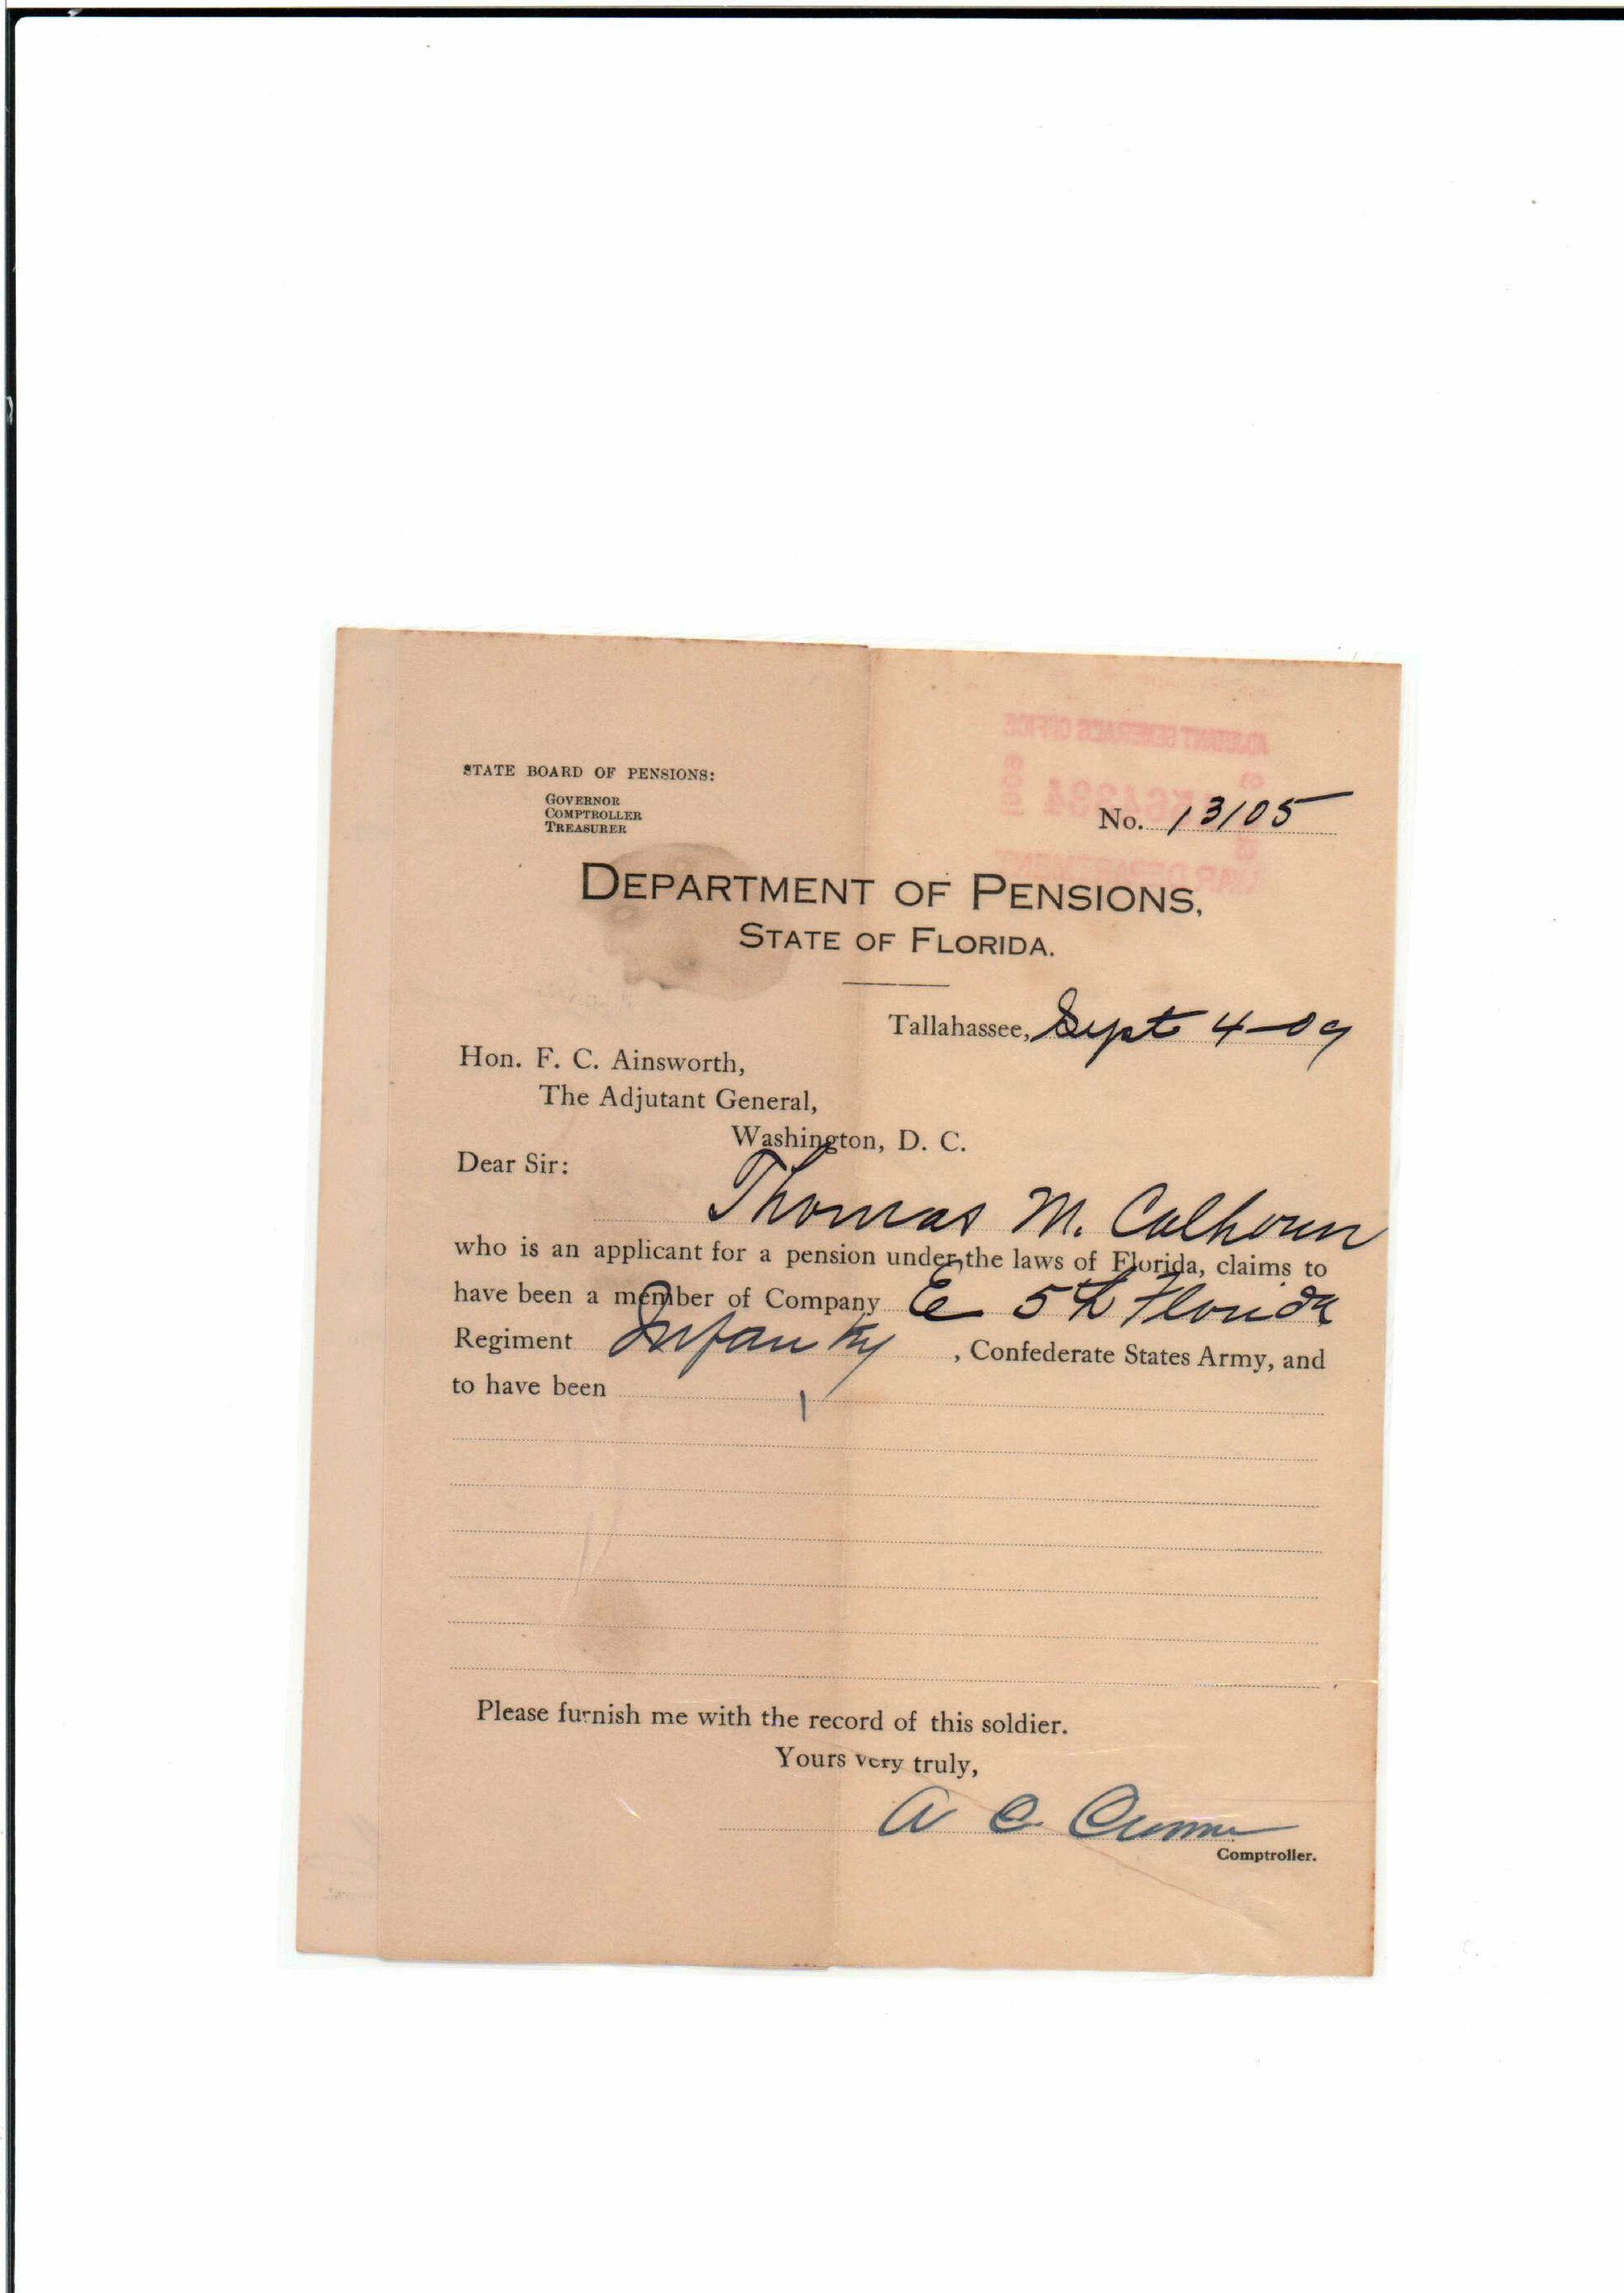 STATE BOARD OF PENSIONS:
GOVERNOR
COMPTROLLER
TREASURER
No. 13105
DEPARTMENT OF PENSIONS,
STATE OF FLORIDA.
Tallahassee, Sept 4-09
Hon. F. C. Ainsworth,
The Adjutant General,
Washington, D. C.
Dear Sir:
Thomas M. Calhoun
who is an applicant for a pension under the laws of Florida, claims to
have been a member of Company E 5th Florida
Regiment Infantry, Confederate States Army, and
to have been
Please furnish me with the record of this soldier.
Yours very truly,
A C
Comptroller.